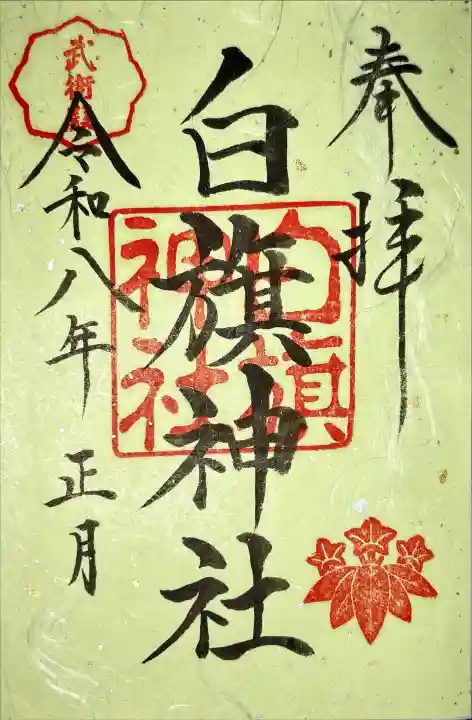 奉拝
白旗神社
白旗神社
令和八年 正月
武衛